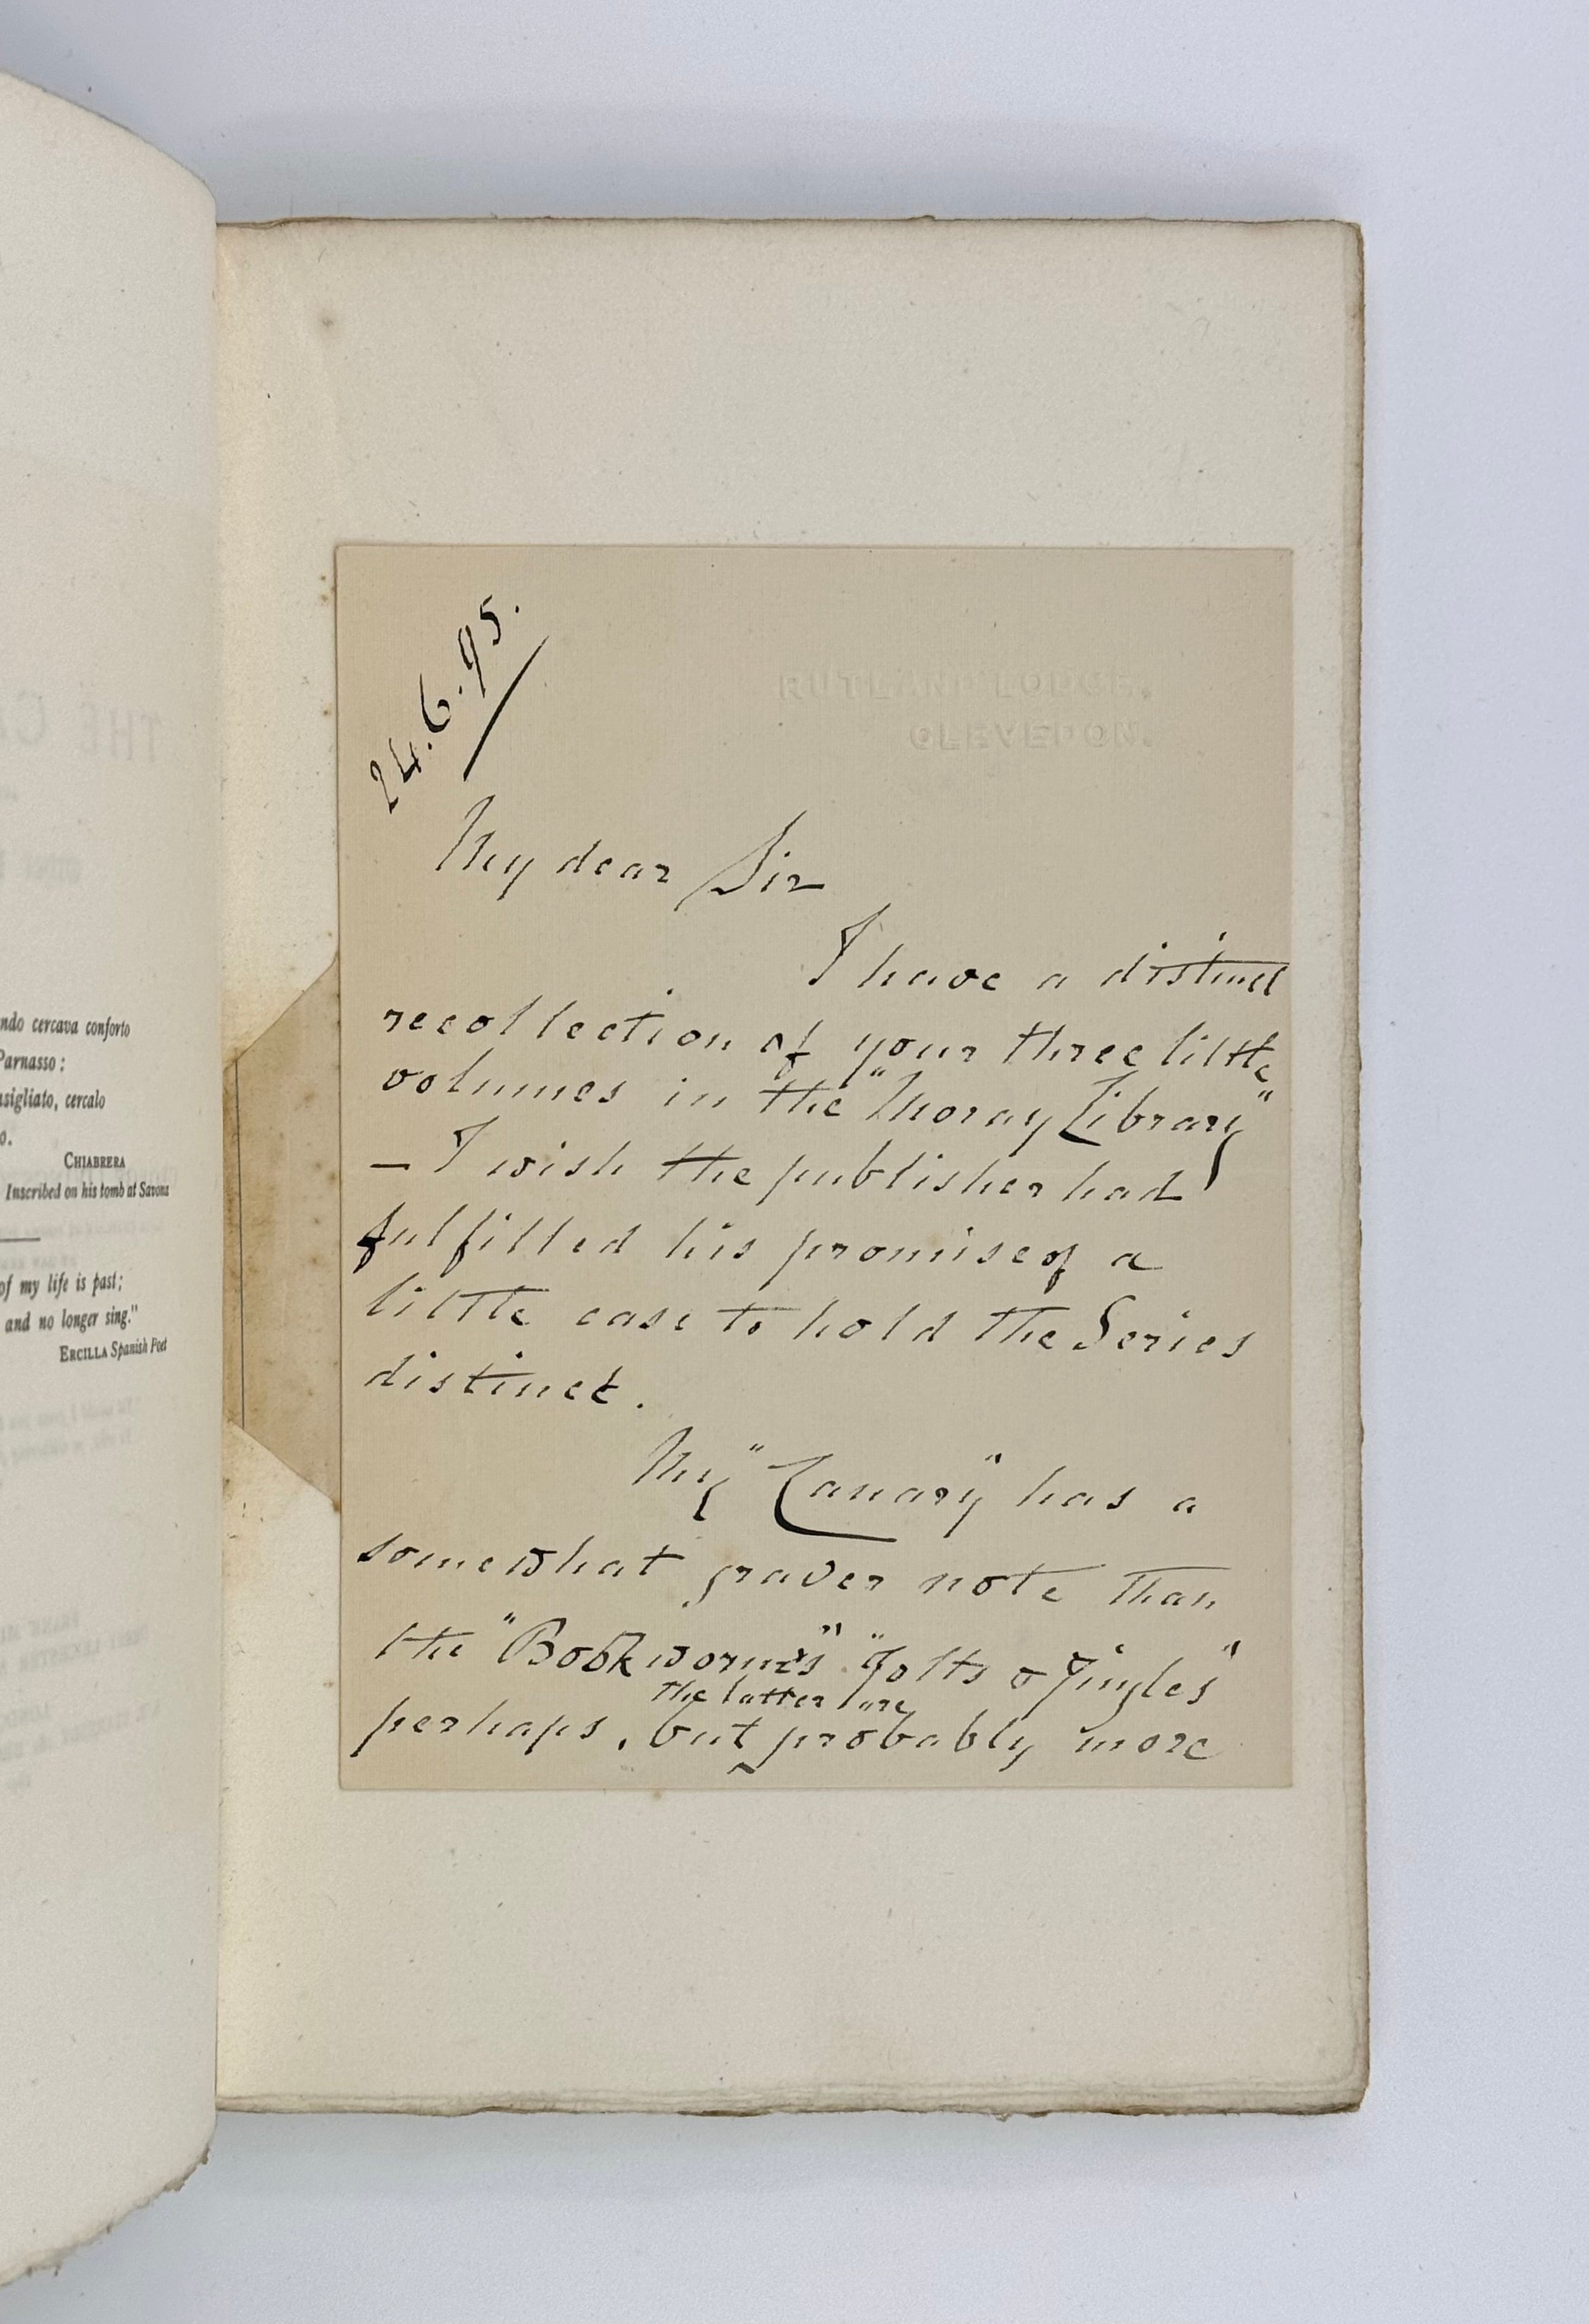 ndo cercava conforto
Parnasso :
nsigliato, cercalo
o.
CHIABRERA
Inscribed on his tomb at Savona
of my life is past;
and no longer sing."
ERCILLA Spanish Poet
THE CA
RUTLAND LODGE,
CLEVEDON.
24.6.95.
My dear Sir
I have a distinct
recollection of your three little
volumes in the "Moray Library"
— I wish the publisher had
fulfilled his promise of a
little case to hold the Series
distinct.
My "Canary" has a
somewhat graver note than
the "Bookworm's" "Jolts & Jingles"
the latter are
perhaps, but probably more